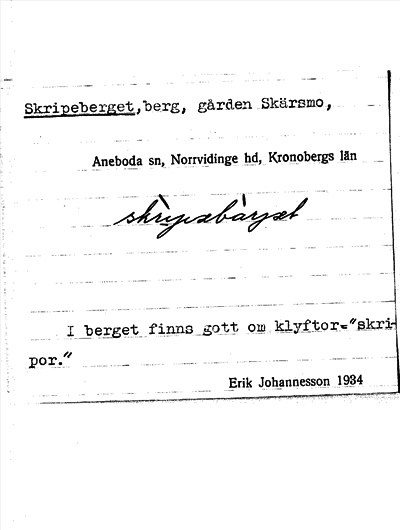 Skripeberget,berg, gården Skärsmo,
Aneboda sn, Norrvidinge hd, Kronobergs län
skrìpæbàrjæt
I berget finns gott om klyftor="skri-
por."
Erik Johannesson 1934